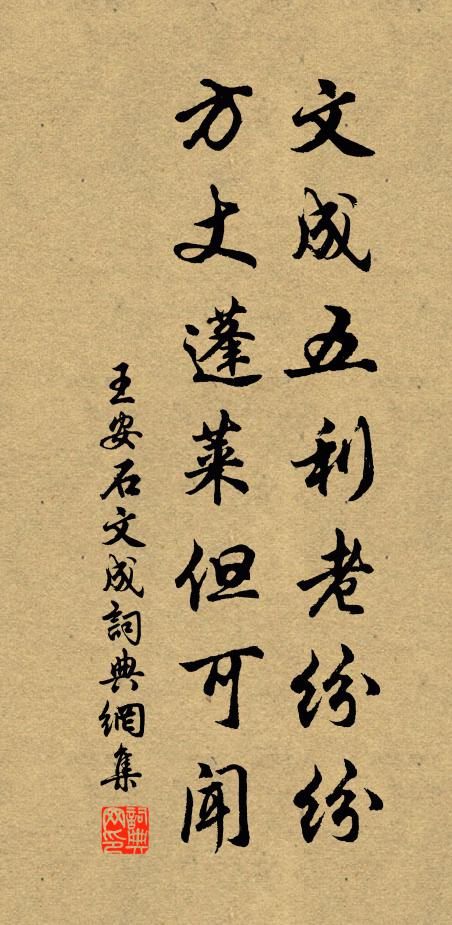 文成五利老紛紛
方丈蓬莱但可聞
王安石文成詞典網集
詞典
网印